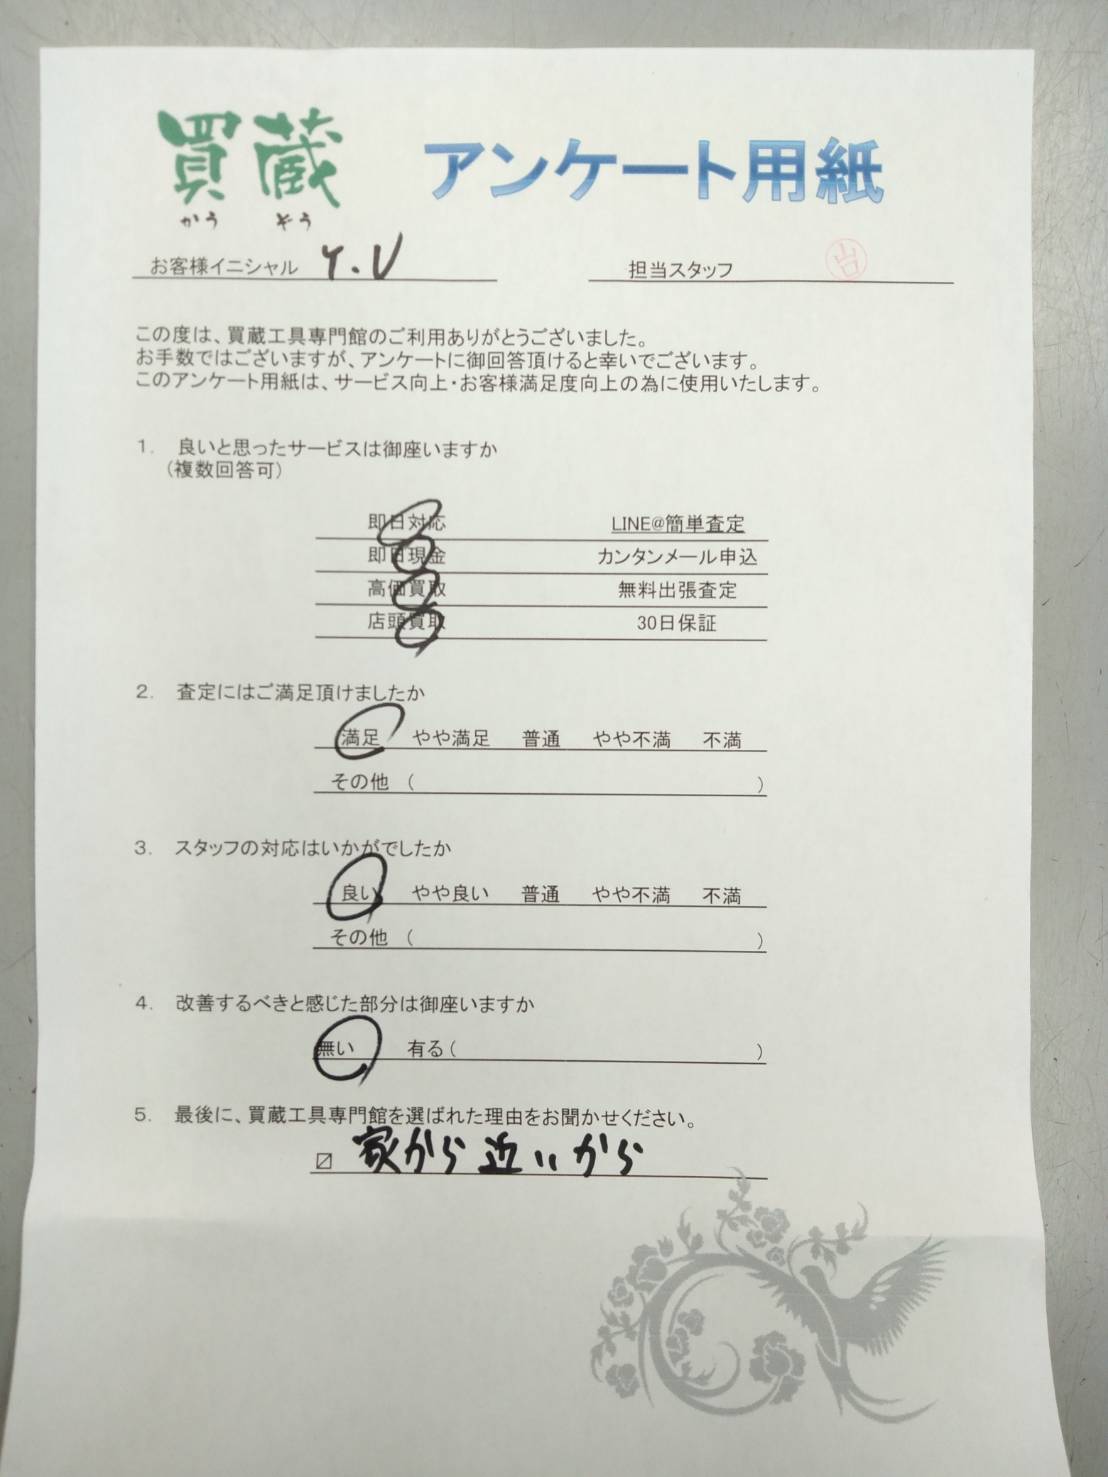 買蔵 アンケート用紙
かうぞう
お客様イニシャル Y.U 担当スタッフ
この度は、買蔵工具専門館のご利用ありがとうございました。
お手数ではございますが、アンケートに御回答頂けると幸いでございます。
このアンケート用紙は、サービス向上・お客様満足度向上の為に使用いたします。
1. 良いと思ったサービスは御座いますか
(複数回答可)
即日対応 LINE@簡単査定
即日現金 カンタンメール申込
高価買取 無料出張査定
店頭買取 30日保証
2. 査定にはご満足頂けましたか
満足 やや満足 普通 やや不満 不満
その他 ( )
3. スタッフの対応はいかがでしたか
良い やや良い 普通 やや不満 不満
その他 ( )
4. 改善するべきと感じた部分は御座いますか
無い 有る( )
5. 最後に、買蔵工具専門館を選ばれた理由をお聞かせください。
家から近いから